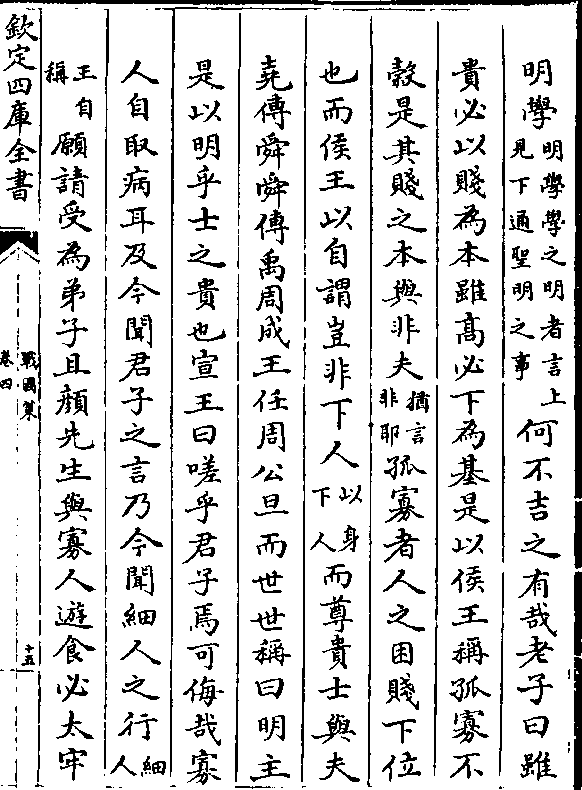 明學明學學之明者言上見下通聖明之事何不吉之有哉老子曰雖
貴必以賤為本雖髙必下為基是以侯王稱孤寡不
穀是其賤之本與非夫猶言非耶孤寡者人之困賤下位
也而侯王以自謂豈非下人以身下人而尊貴士與夫
堯傳舜舜傳禹周成王任周公旦而世世稱曰明主
是以明乎士之貴也宣王曰嗟乎君子焉可侮哉寡
人自取病耳及今聞君子之言乃今聞細人之行細人
王自稱願請受為弟子且顔先生與寡人遊食必太牢
欽定四庫全書
戰國策
卷四
十五